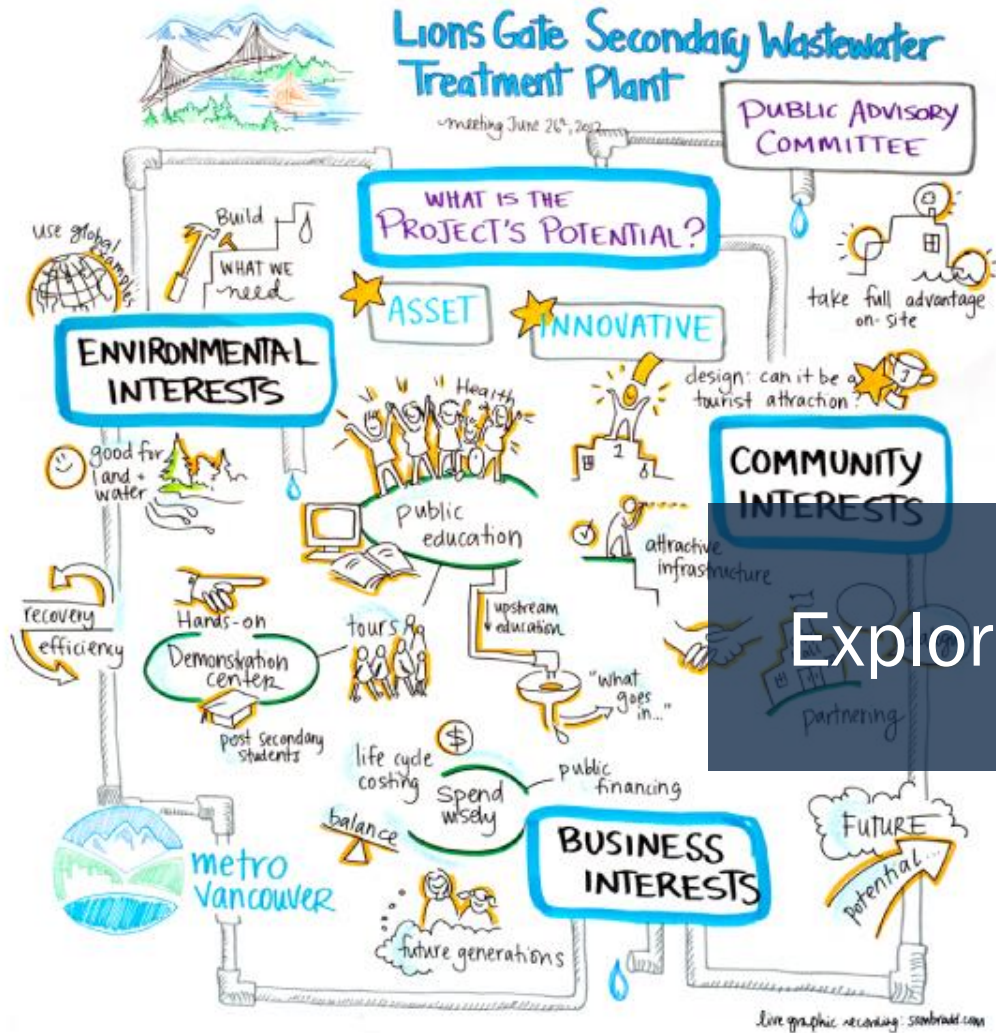 Lions Gate Secondary Wastewater
Treatment Plant
meeting June 26th, 2012
PUBLIC ADVISORY
COMMITTEE
WHAT IS THE
PROJECT'S POTENTIAL?
use global
examples
Build
WHAT WE
need
ASSET
INNOVATIVE
take full advantage
on-site
ENVIRONMENTAL
INTERESTS
Health
design: can it be a
tourist attraction?
1
1
COMMUNITY
INTERESTS
good for
land +
water
public
education
attractive
infrastructure
recovery
efficiency
Hands-on
Demonstration
center
tours
upstream
education
Explor
"what
goes
in..."
partnering
post secondary
students
$
life cycle
costing
Spend
wisely
public
financing
balance
BUSINESS
INTERESTS
FUTURE
Potential...
metro
vancouver
future generations
live graphic recording: sambradd.com